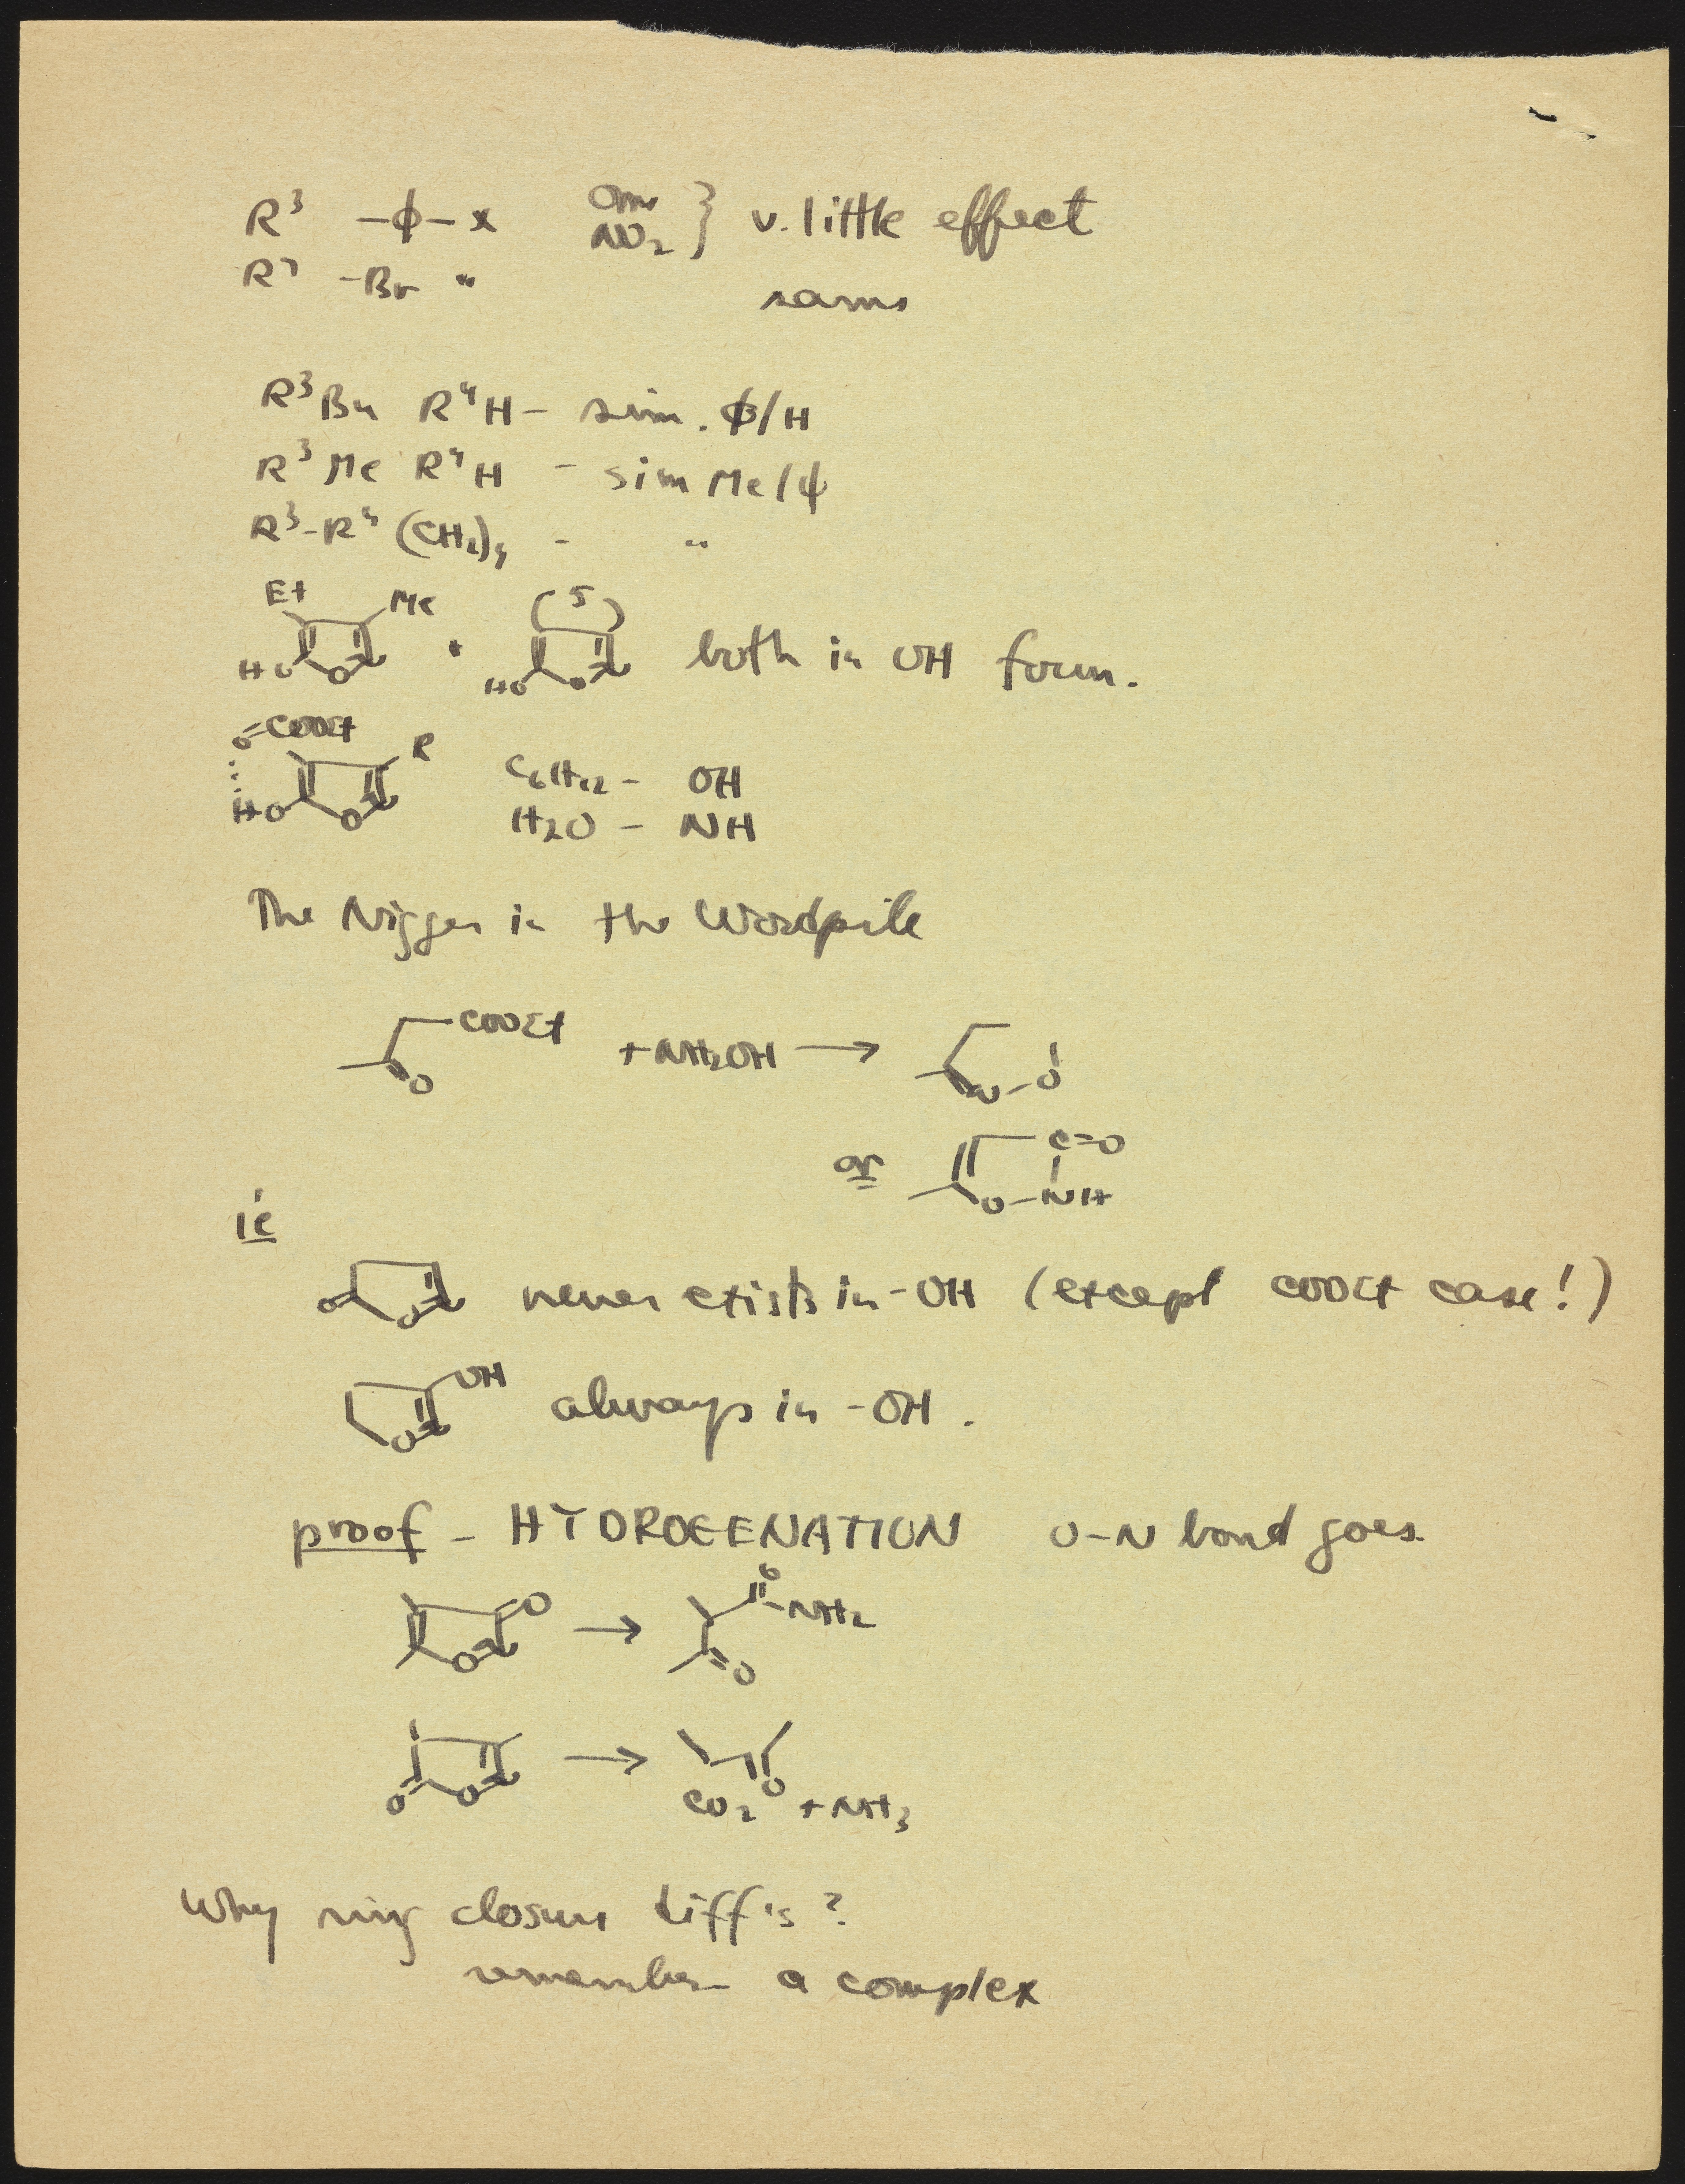 R³ -ϕ- x OMe } v. little effect
NO₂
R⁴ -Br " same
R³Bu R⁴H - sim. ϕ/H
R³Me R⁴H - sim Me/ϕ
R³-R⁴ (CH₂)₄ - "
Et Me (5)
HO O N + HO O N both in OH form.
O=COOEt R C₆H₁₂ - OH
HO O N H₂O - NH
The Nigger in the Woodpile
COOEt
O + NH₂OH → N-O
or C=O
O-NH
ie
O O N never exists in -OH (except COOEt case!)
OH
O N always in -OH.
proof - HYDROGENATION O-N bond goes
O O N → O NH₂
O
O O N → O
CO₂ + NH₃
Why ring closure diff's?
remember a complex